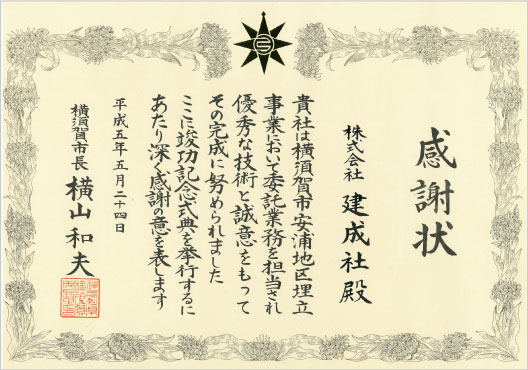 感謝状
株式会社 建成社 殿
貴社は横須賀市安浦地区埋立
事業において委託業務を担当され
優秀な技術と誠意をもって
その完成に努められました
ここに竣功記念式典を挙行するに
あたり深く感謝の意を表します
平成五年五月二十四日
横須賀市長 横山和夫